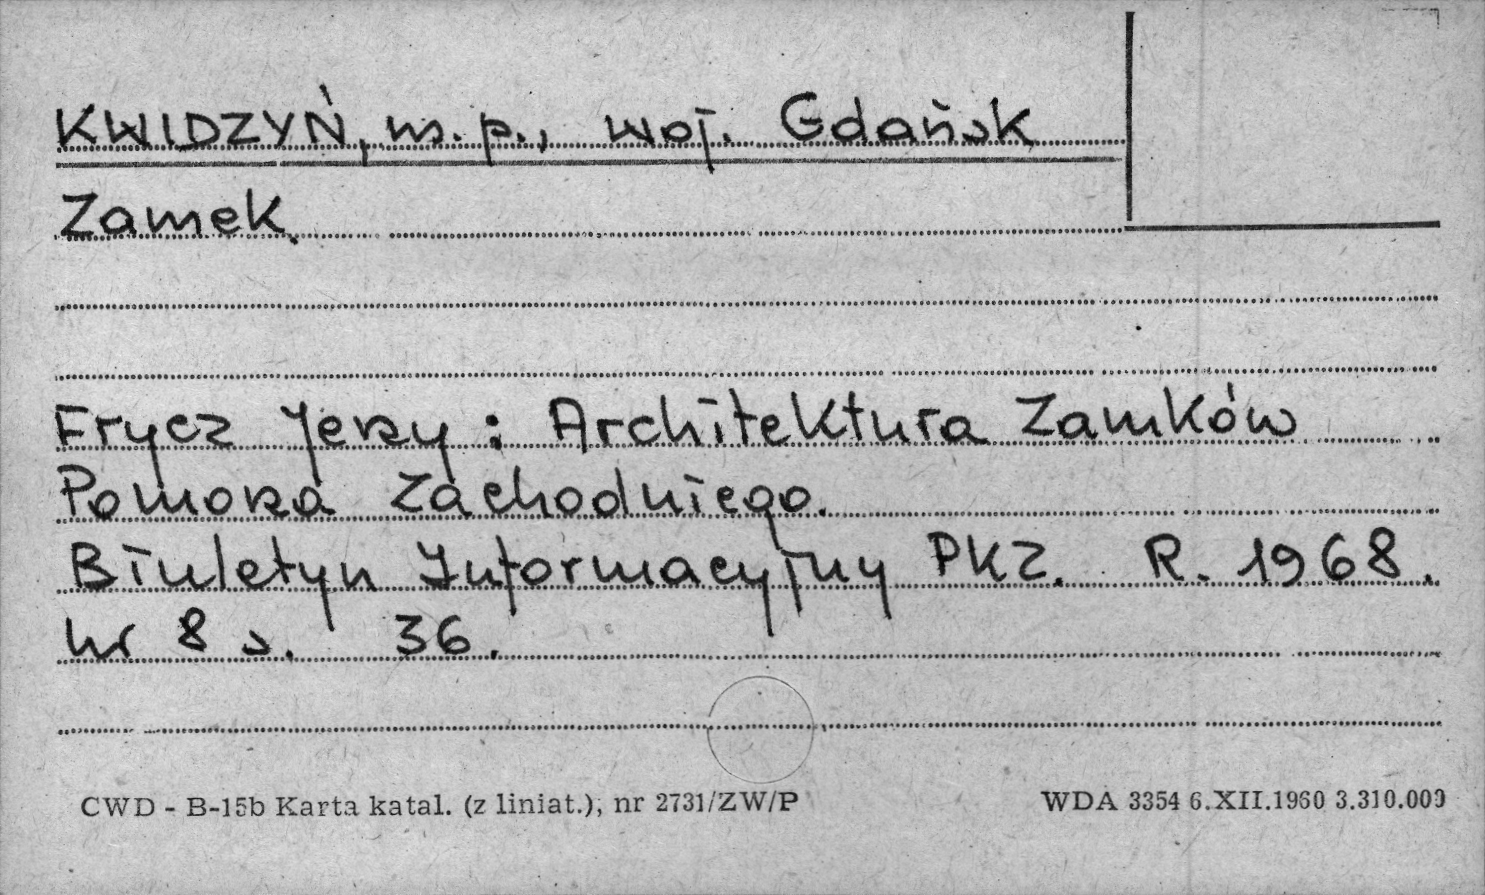 KWIDZYŃ, m. p., woj. Gdańsk
Zamek.
Frycz Jerzy : Architektura Zamków
Pomorza Zachodniego.
Biuletyn Informacyjny PKZ. R. 1968.
nr 8 s. 36.
CWD - B-15b Karta katal. (z liniat.), nr 2731/ZW/P
WDA 3354 6.XII.1960 3.310.000